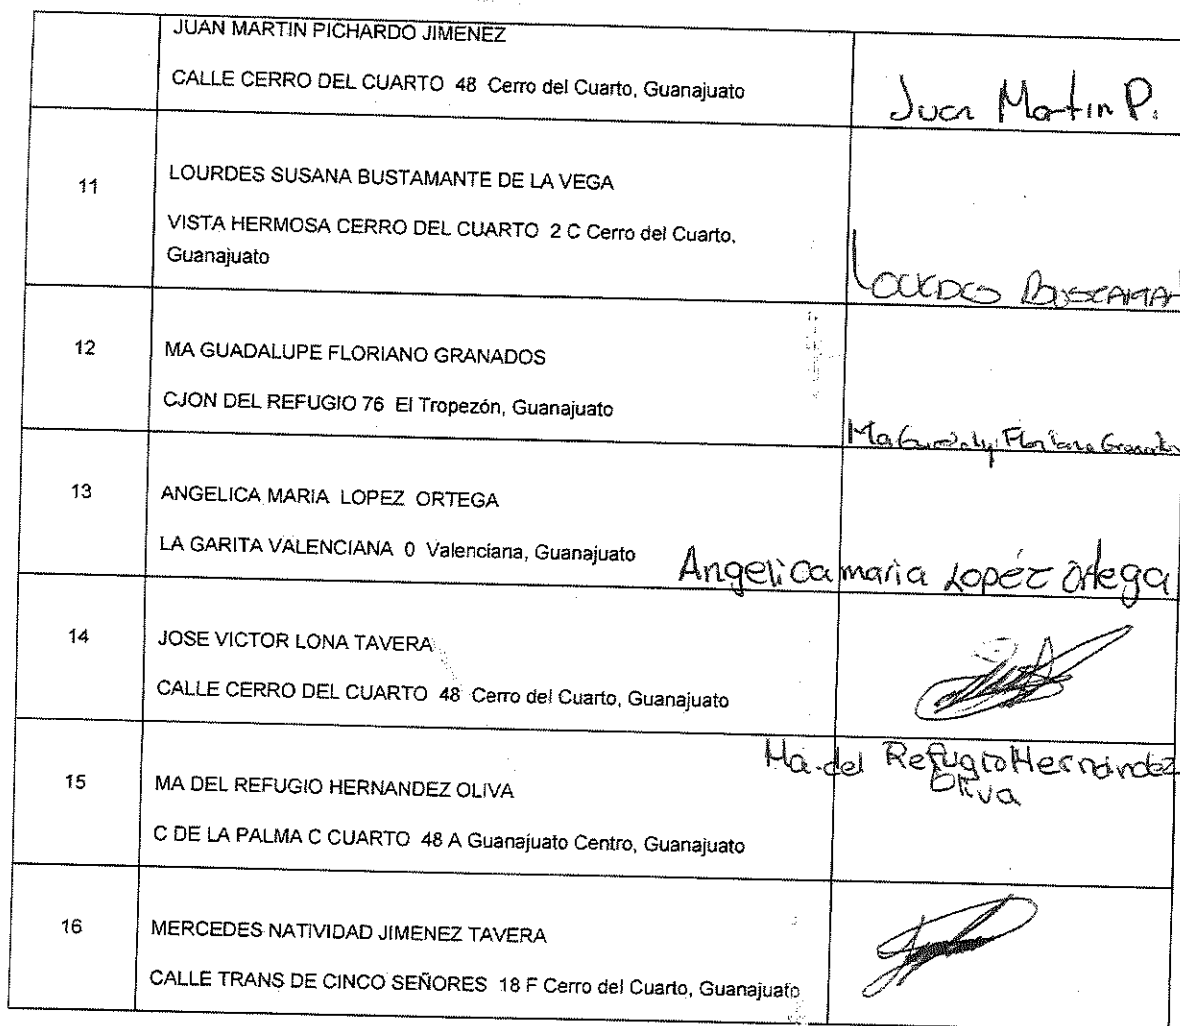 JUAN MARTIN PICHARDO JIMENEZ
CALLE CERRO DEL CUARTO 48 Cerro del Cuarto, Guanajuato
Juan Martin P.
11
LOURDES SUSANA BUSTAMANTE DE LA VEGA
VISTA HERMOSA CERRO DEL CUARTO 2 C Cerro del Cuarto,
Guanajuato
12
MA GUADALUPE FLORIANO GRANADOS
CJON DEL REFUGIO 76 El Tropezón, Guanajuato
13
ANGELICA MARIA LOPEZ ORTEGA
LA GARITA VALENCIANA 0 Valenciana, Guanajuato
Angelica maria Lopéz Ortega
14
JOSE VICTOR LONA TAVERA
CALLE CERRO DEL CUARTO 48 Cerro del Cuarto, Guanajuato
15
Ma. del Refugio Hernández
Oliva
MA DEL REFUGIO HERNANDEZ OLIVA
C DE LA PALMA C CUARTO 48 A Guanajuato Centro, Guanajuato
16
MERCEDES NATIVIDAD JIMENEZ TAVERA
CALLE TRANS DE CINCO SEÑORES 18 F Cerro del Cuarto, Guanajuato